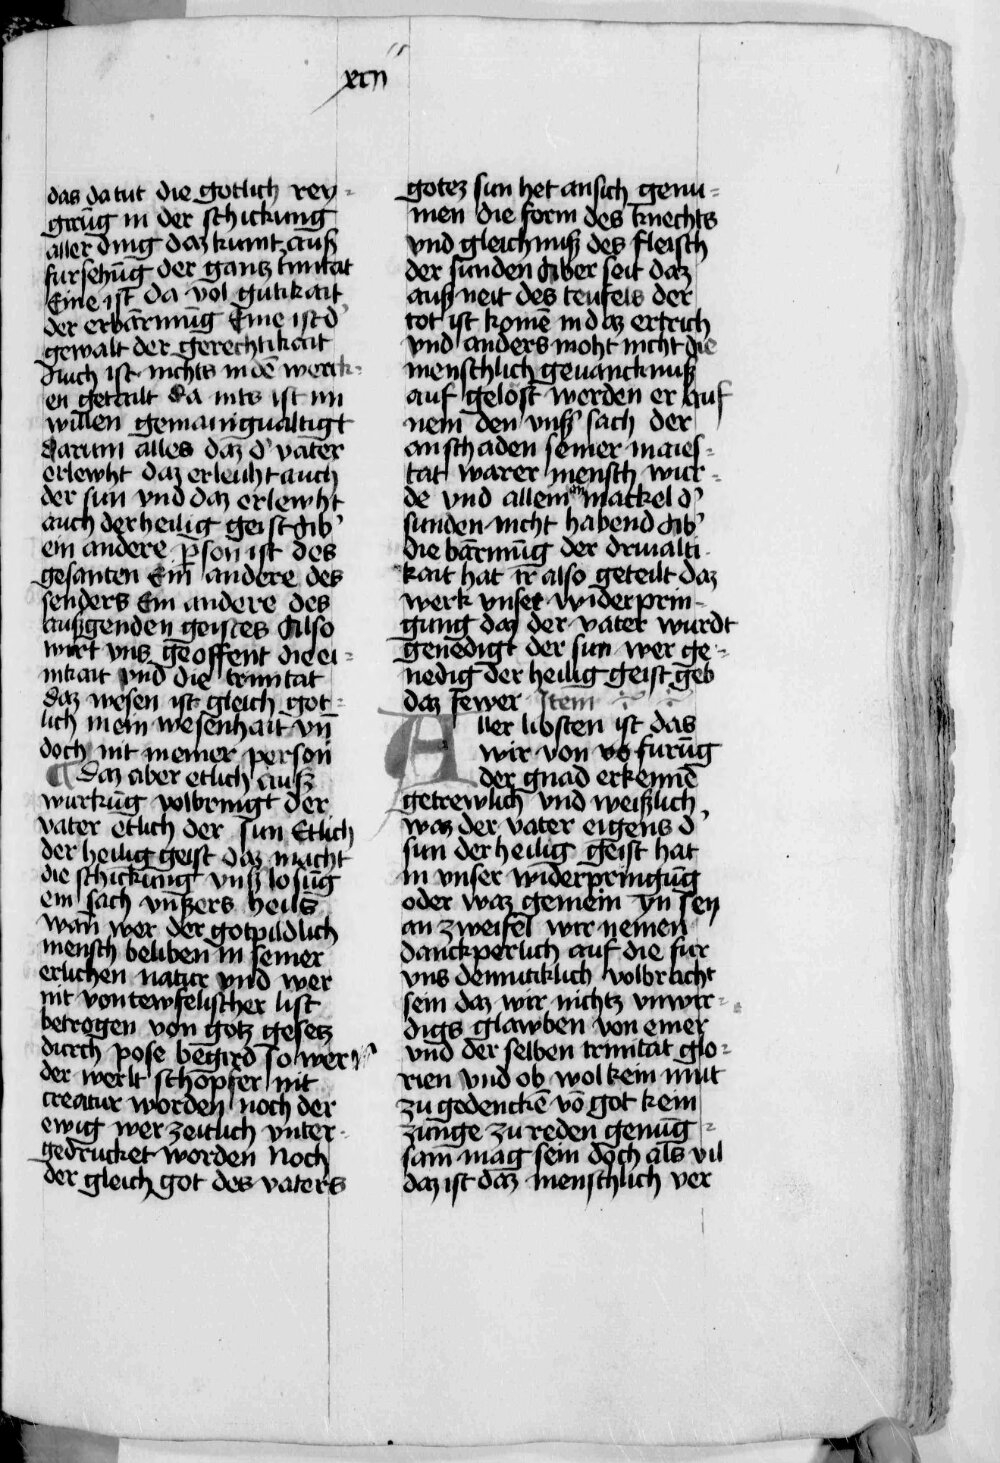 xcij
das da tut die gotlich rey-
grūg in der schickung
aller ding daz kumt auß
fursehūg der gantz trinitat
Eine ist da vol gutikait
der erbārmūg Eine ist d'
gewalt der gerechtikait
Auch ist nichts in dē werck-
en getailt da nits ist im
willen gemainigualtigt
Darum alles daz d' vater
erlewht daz erleuht auch
der sun vnd daz erlewht
auch der heilig geist Ab'
ein andere pson ist des
gesanten Ein andere des
senders Ein andere des
außgenden geistes Also
wirt vns geoffent die ei-
nikait vnd die trinitat
Daz wesen ist gleich got-
lich in ein wesenhait vn̄
doch nit in einer person
Daz aber etlich auß
wurkūg volbringt der
vater etlich der sun Etlich
der heilig geist daz macht
die schickung vnß losūg
ein sach vnßers heils
Wan̄ wer der gotpildlich
mensch beliben in seiner
erlichen natur vnd wer
nit von tewfelischer list
betrogen von gotz gesetz
durch pose begird so wer
der werlt schopfer nit
creatur worden noch der
ewig wer zeitlich vnter-
gedrucket worden Noch
der gleich got des vaters
gotez sun het an sich genu-
men die form des knechts
vnd gleichnuß des fleisch
der sunden Aber seit daz
auß neit des teufels der
tot ist komē in daz ertrich
vnd anders moht nicht die
menschlich geuancknuß
auf gelöst werden er auf
nem den vnß' sach der
an schaden seiner maies-
tat warer mensch wur-
de vnd allein on mackel d'
sunden nicht habend Ab'
die bārmūg der driualti-
kait hat ir also geteilt daz
werk vnser widerprin-
gung daz der vater wurdt
genedigt der sun wer ge-
nedig der heilig geist geb
daz fewer Item
Aller libsten ist das
wir von vo furūg
der gnad erkennē
getrewlich vnd weißlich
waz der vater eigens d'
sun der heilig geist hat
in vnser widerpringūg
oder waz gemein yn sey
an zweifel wir nemen
danckperlich auf die für
vns demutiklich volbracht
sein daz wir nichtz vnwir-
digs glawben von einer
vnd der selben trinitat glo-
rien vnd ob wol kein mut
zu gedenckē vō got kein
zunge zu reden genūg-
sam mag sein doch als vil
daz ist daz menschlich ver